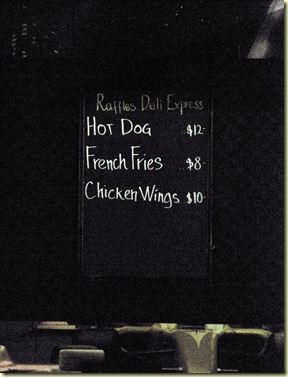 Raffles Deli Express
HOT DOG ..$12-
French Fries ..$8-
Chicken Wings ..$10-